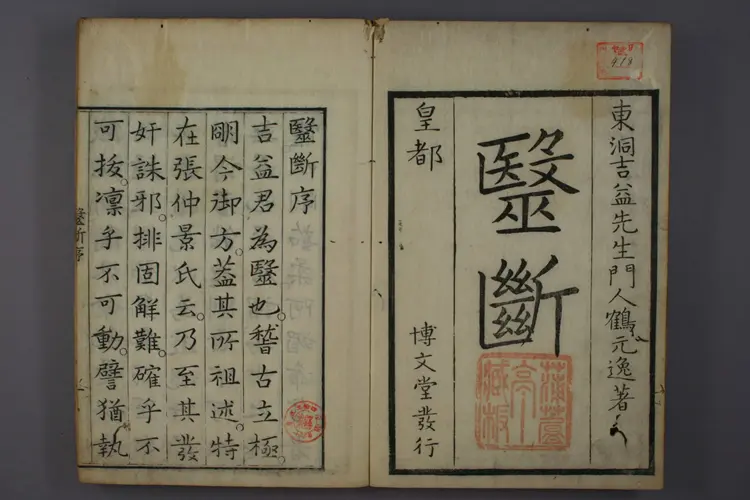 東洞吉益先生門人鶴元逸著
毉斷
皇都
博文堂發行
919
毉斷序
吉益君為毉也。稽古立極。
明今御方。葢其所祖述。特
在張仲景氏云。乃至其發
奸誅邪。排固解難。確乎不
可拔。凛乎不可動。譬猶執
毉斷序